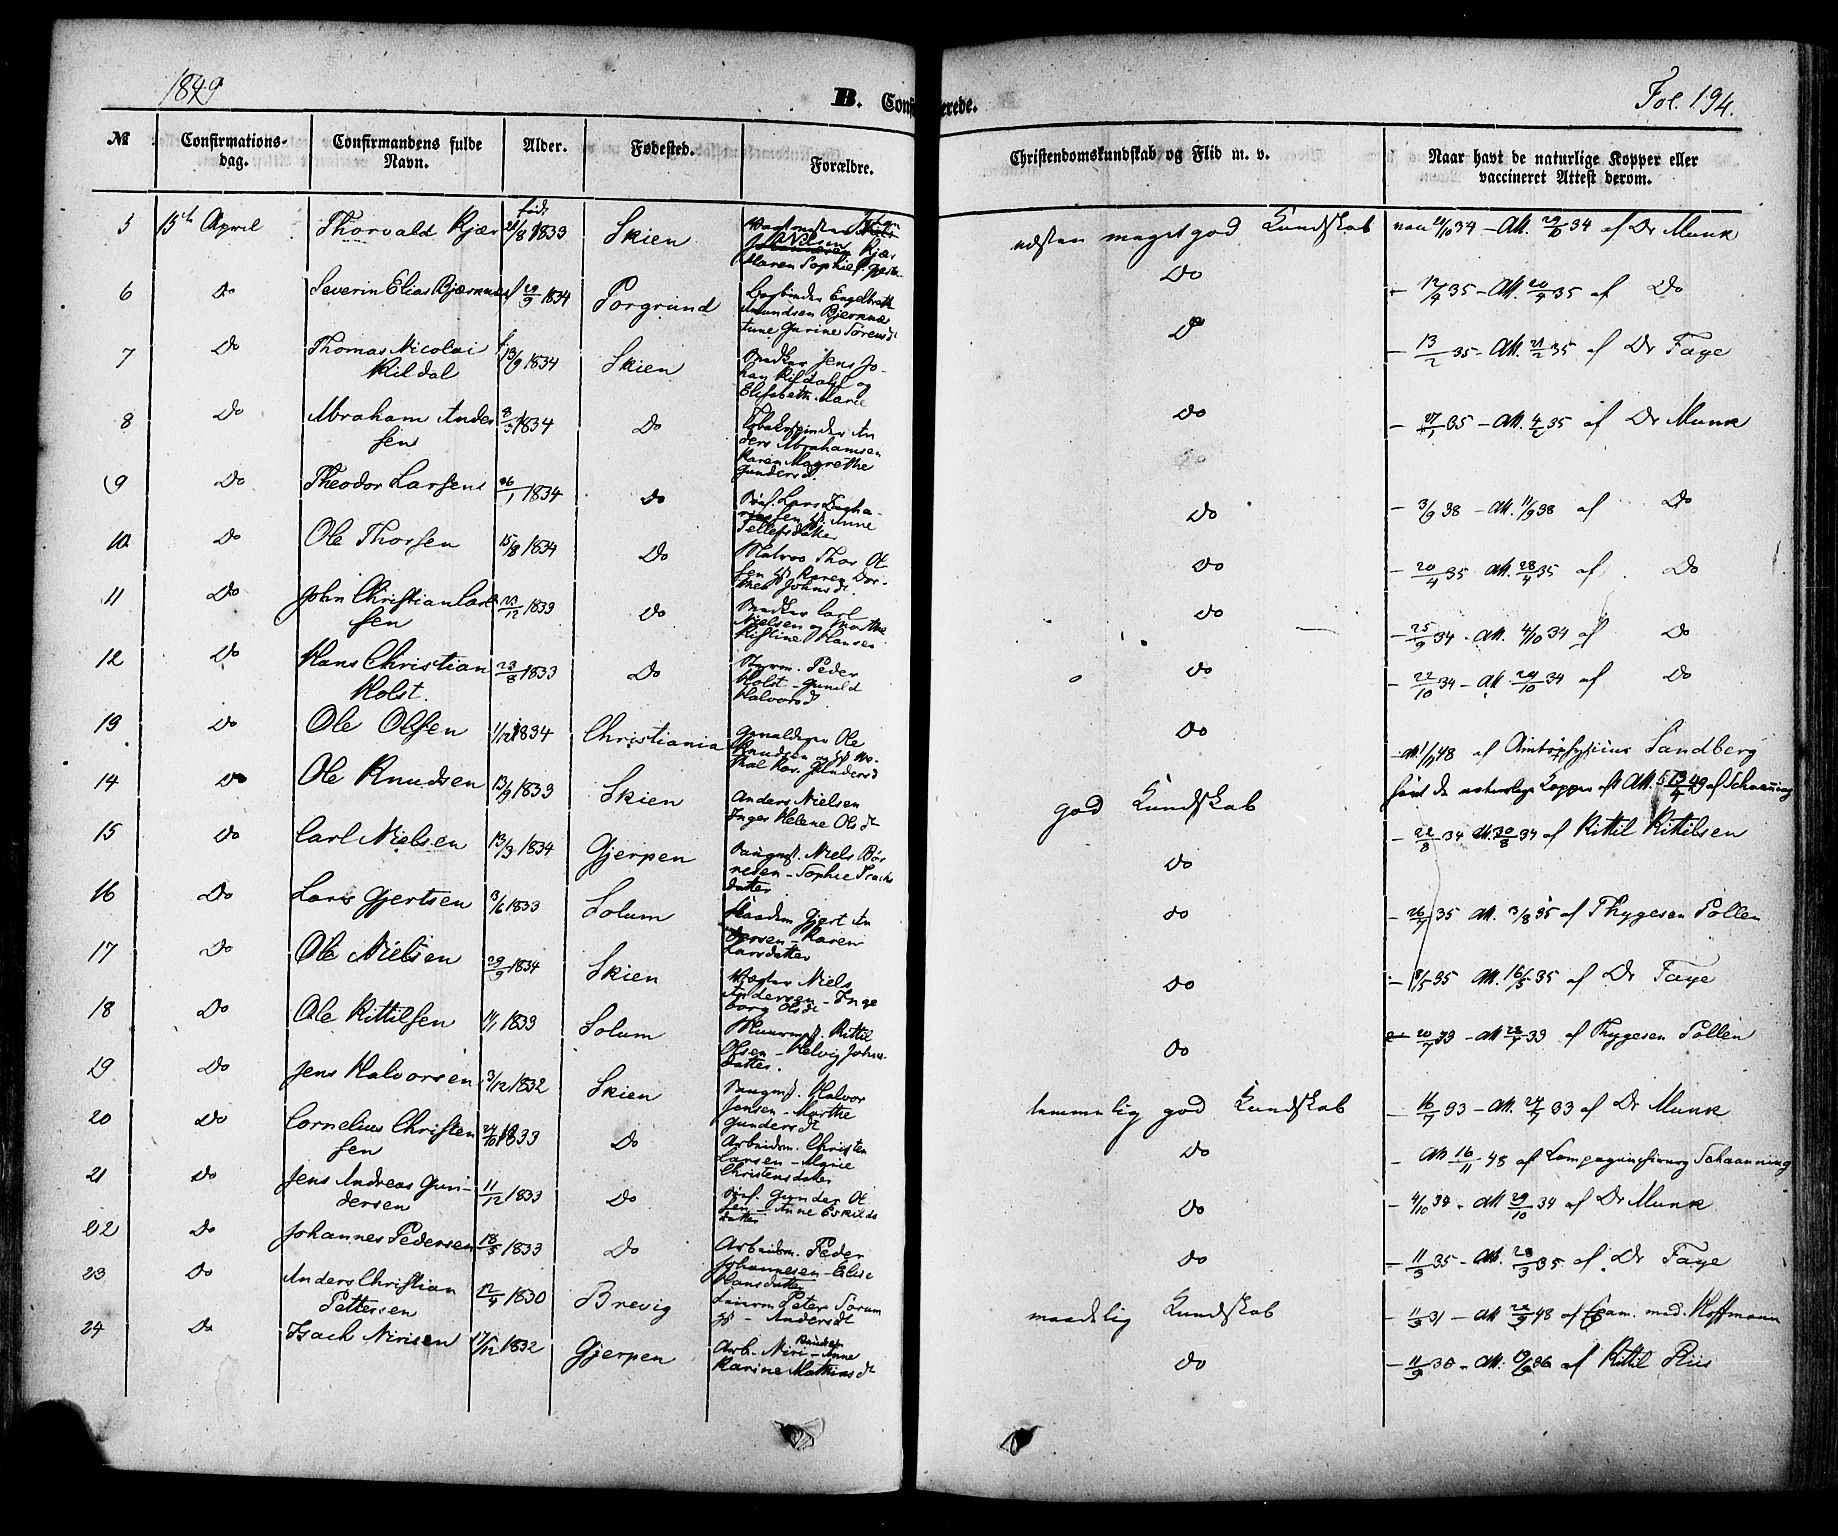 1849
B. Confirmerede.
Fol. 194.
№ Confirmations-dag. Confirmandens fulde Navn. Alder. Fødested. Forældre. Christendomskundskab og Flid m. v. Naar havt de naturlige Kopper eller vaccineret Attest derom.
5 15de April Thorvald Kjær 1833 Skien Kjær Maren Sophie næsten meget god Kundskab 34 - Att. 29/10 34 af Dr Munk
6 Do Severin Elias Bjørnnes 29/9 1834 Porgrund Engelbret Amundsen Gurine Do 35 - Att. 20/9 35 af Do
7 Do Thomas Nicolai Kildal f 13/9 1834 Skien Snedker Jens Johan Kildahl og Elisabeth Marie Do - 13/2 35 - Att. 21/2 35 af Dr Faye
8 Do Abraham Andersen 8/3 1834 Do Tobakspinder Anders Abrahamsen Karen Magrethe Gundersd. Do 35 - Att. 35 af Dr Munk
9 Do Theodor Larsens 26/1 1834 Do Lars Zacha- Anne Tellefsdatter Do - 3/9 38 - Att. 11/9 38 af Do
10 Do Ole Thorsen 15/8 1834 Do Thor Olsen Karen Dorthea Johnsdt. Do - 20/4 35 Att. 28/4 35 af Do
11 Do John Christian Carlsen 1833 Do Snedker Carl Nielsen og Marthe Kistine Hansen Do - 25/9 34 - Att. 4/10 34 af Do
12 Do Hans Christian Holst. 23/8 1833 Do Styrm. Peder Holst - Gunild Halvorsd. Do - 22/10 34 - Att. 29/10 34 af Do
13 Do Ole Olsen 1834 Christiania Ole Knudsen Kar. Gundersd Do Att 48 af Amtsphysicus Sandberg
14 Do Ole Knudsen 13/9 1833 Skien Anders Nielsen Inger Helene Olsdt god Kundskab havt de naturlige Kopper Att. 13/4 49 af Schaanning
15 Do Carl Nielsen 13/3 1834 Gjerpen Niels Sophie datter Do - 22/8 34 Att. 30/8 34 af Kittil Kittilsen
16 Do Lars Gjertsen 3/6 1833 Solum Gjert Andersen - Karen Larsdatter Do - 26/7 35 Att. 3/8 35 af Thygesen Pollen
17 Do Ole Nielsen 29/9 1834 Skien Vægter Niels Andersen - Ingeborg Olsdt Do - 8/5 35 Att. 16/5 35 af Dr Faye
18 Do Ole Kittilsen 1833 Solum Kittil Olsen - Helvig Johnsdatter. Do 20/7 33 - Att 28/7 33 af Thygesen Pollen
19 Do Jens Halvorsen 3/12 1832 Skien Halvor Jensen - Marthe Gundersdt temmelig god Kundskab - 16/7 33 - Att. 24/7 33 af Dr Munk
20 Do Cornelius Christensen 24/10 1833 Do Arbeidsm. Christen Larsen - Marie Christensdatter Do - Att 16/11 48 af Compagnichirurg Schaanning
21 Do Jens Andreas Gundersen 11/12 1833 Do Gunder Olsen - Anne Eskildsdatter Do - 4/10 34 - Att. 29/10 34 af Dr Munk
22 Do Johannes Pedersen 18/5 1833 Do Arbeidsm. Peder Johannesen - Elise Hansdatter Do - 11/3 35 - Att. 28/3 35 af Dr Faye
23 Do Anders Christian Pettersen 12/4 1830 Brevig Peter - Andersdt maadelig Kundskab - 11/9 31 - Att 48 af Exam. med. Hoffmann
24 Do Isach Nirisen 17/12 1832 Gjerpen Arb. Niri - Anne Karine Mathiasdt Do - 11/9 36 - Att. 36 af Kittil Riis